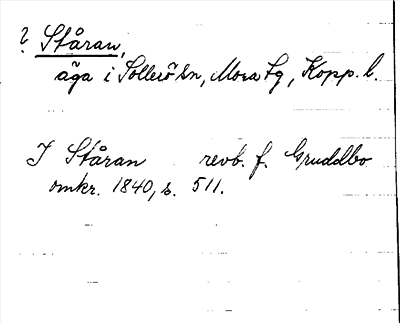 ? Ståran,
äga i Sollerö sn, Mora tg, Kopp. l.
I Ståran revb. f. Gruddbo
omkr. 1840, s. 511.